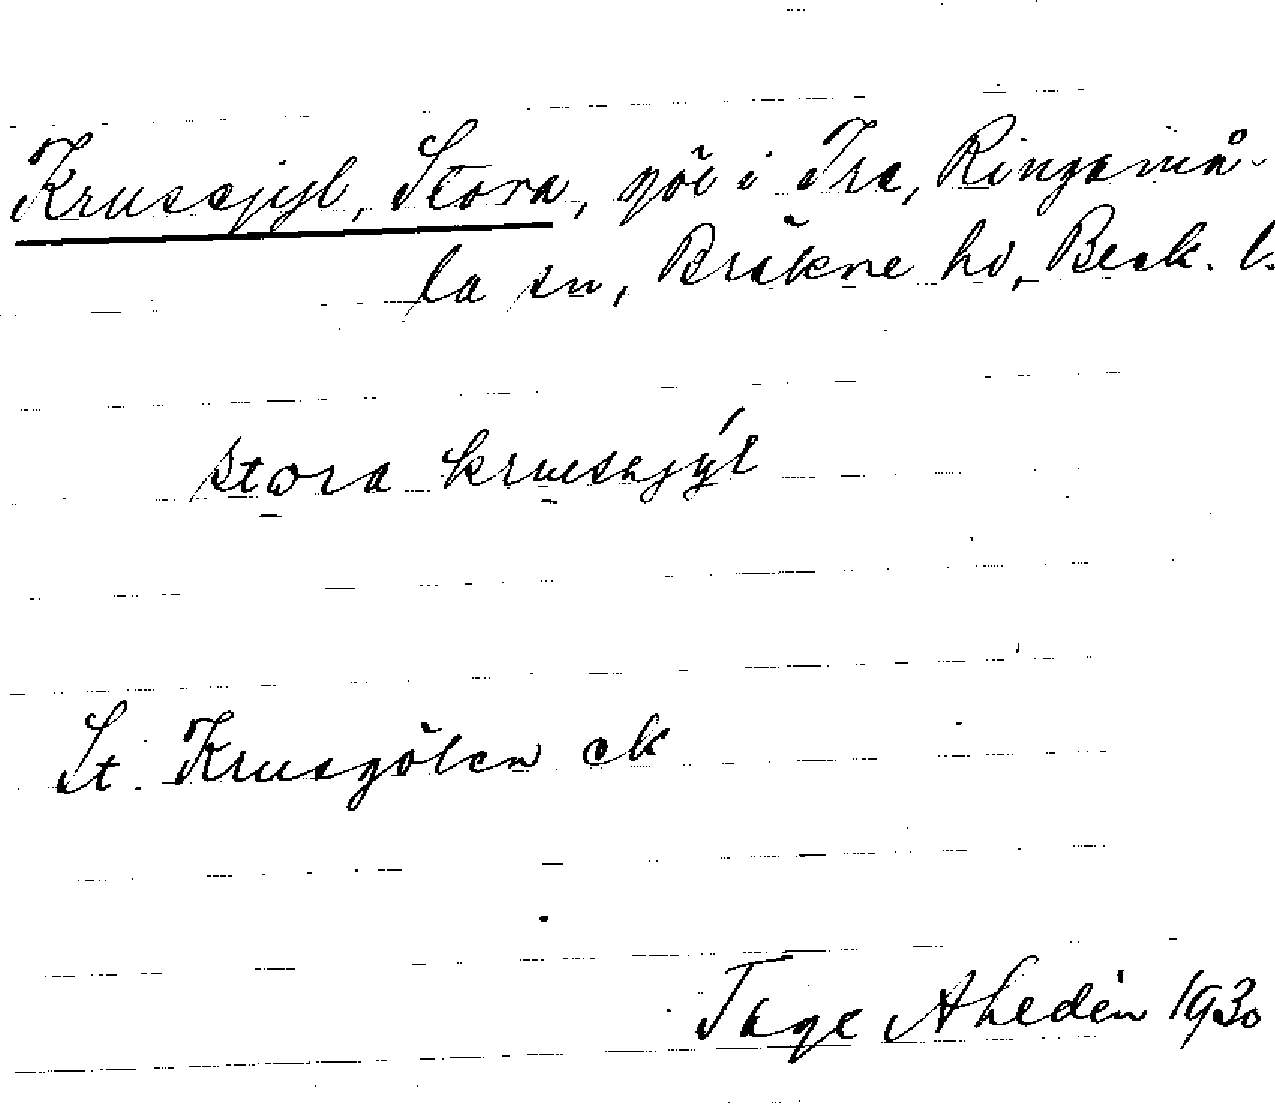 Krusagyl, Stora, göl i Ire, Ringamå-
la sn, Bräkne hd, Blek. l.
stora krusagýl
St. Krusgölen ek
Tage Ahledén 1930